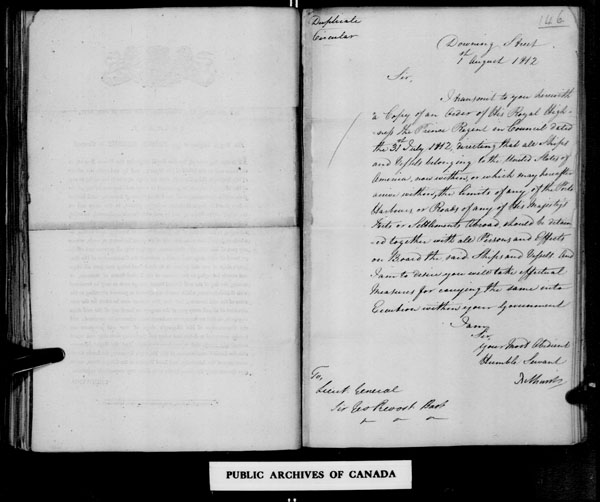 Duplicate
Circular
146
Downing Street
1st August 1812
Sir,
I transmit to you herewith
a Copy of an Order of His Royal High-
ness The Prince Regent in Council dated
the 31st July 1812, directing that all Ships
and Vessels belonging to the United States of
America, now within, or which may hereafter
arrive within, the limits of any of the Ports
Harbours or Roads of any of His Majesty's
Forts or Settlements Abroad, should be detain
-ed together with all Persons and Effects
on Board the said Ships and Vessels. And
I am to desire you will take effectual
Measures for carrying the same into
Execution within your Government
I am,
Sir,
Your Most Obedient
Humble Servant
Bathurst
To,
Lieut General
Sir Geo Prevost Bart
PUBLIC ARCHIVES OF CANADA